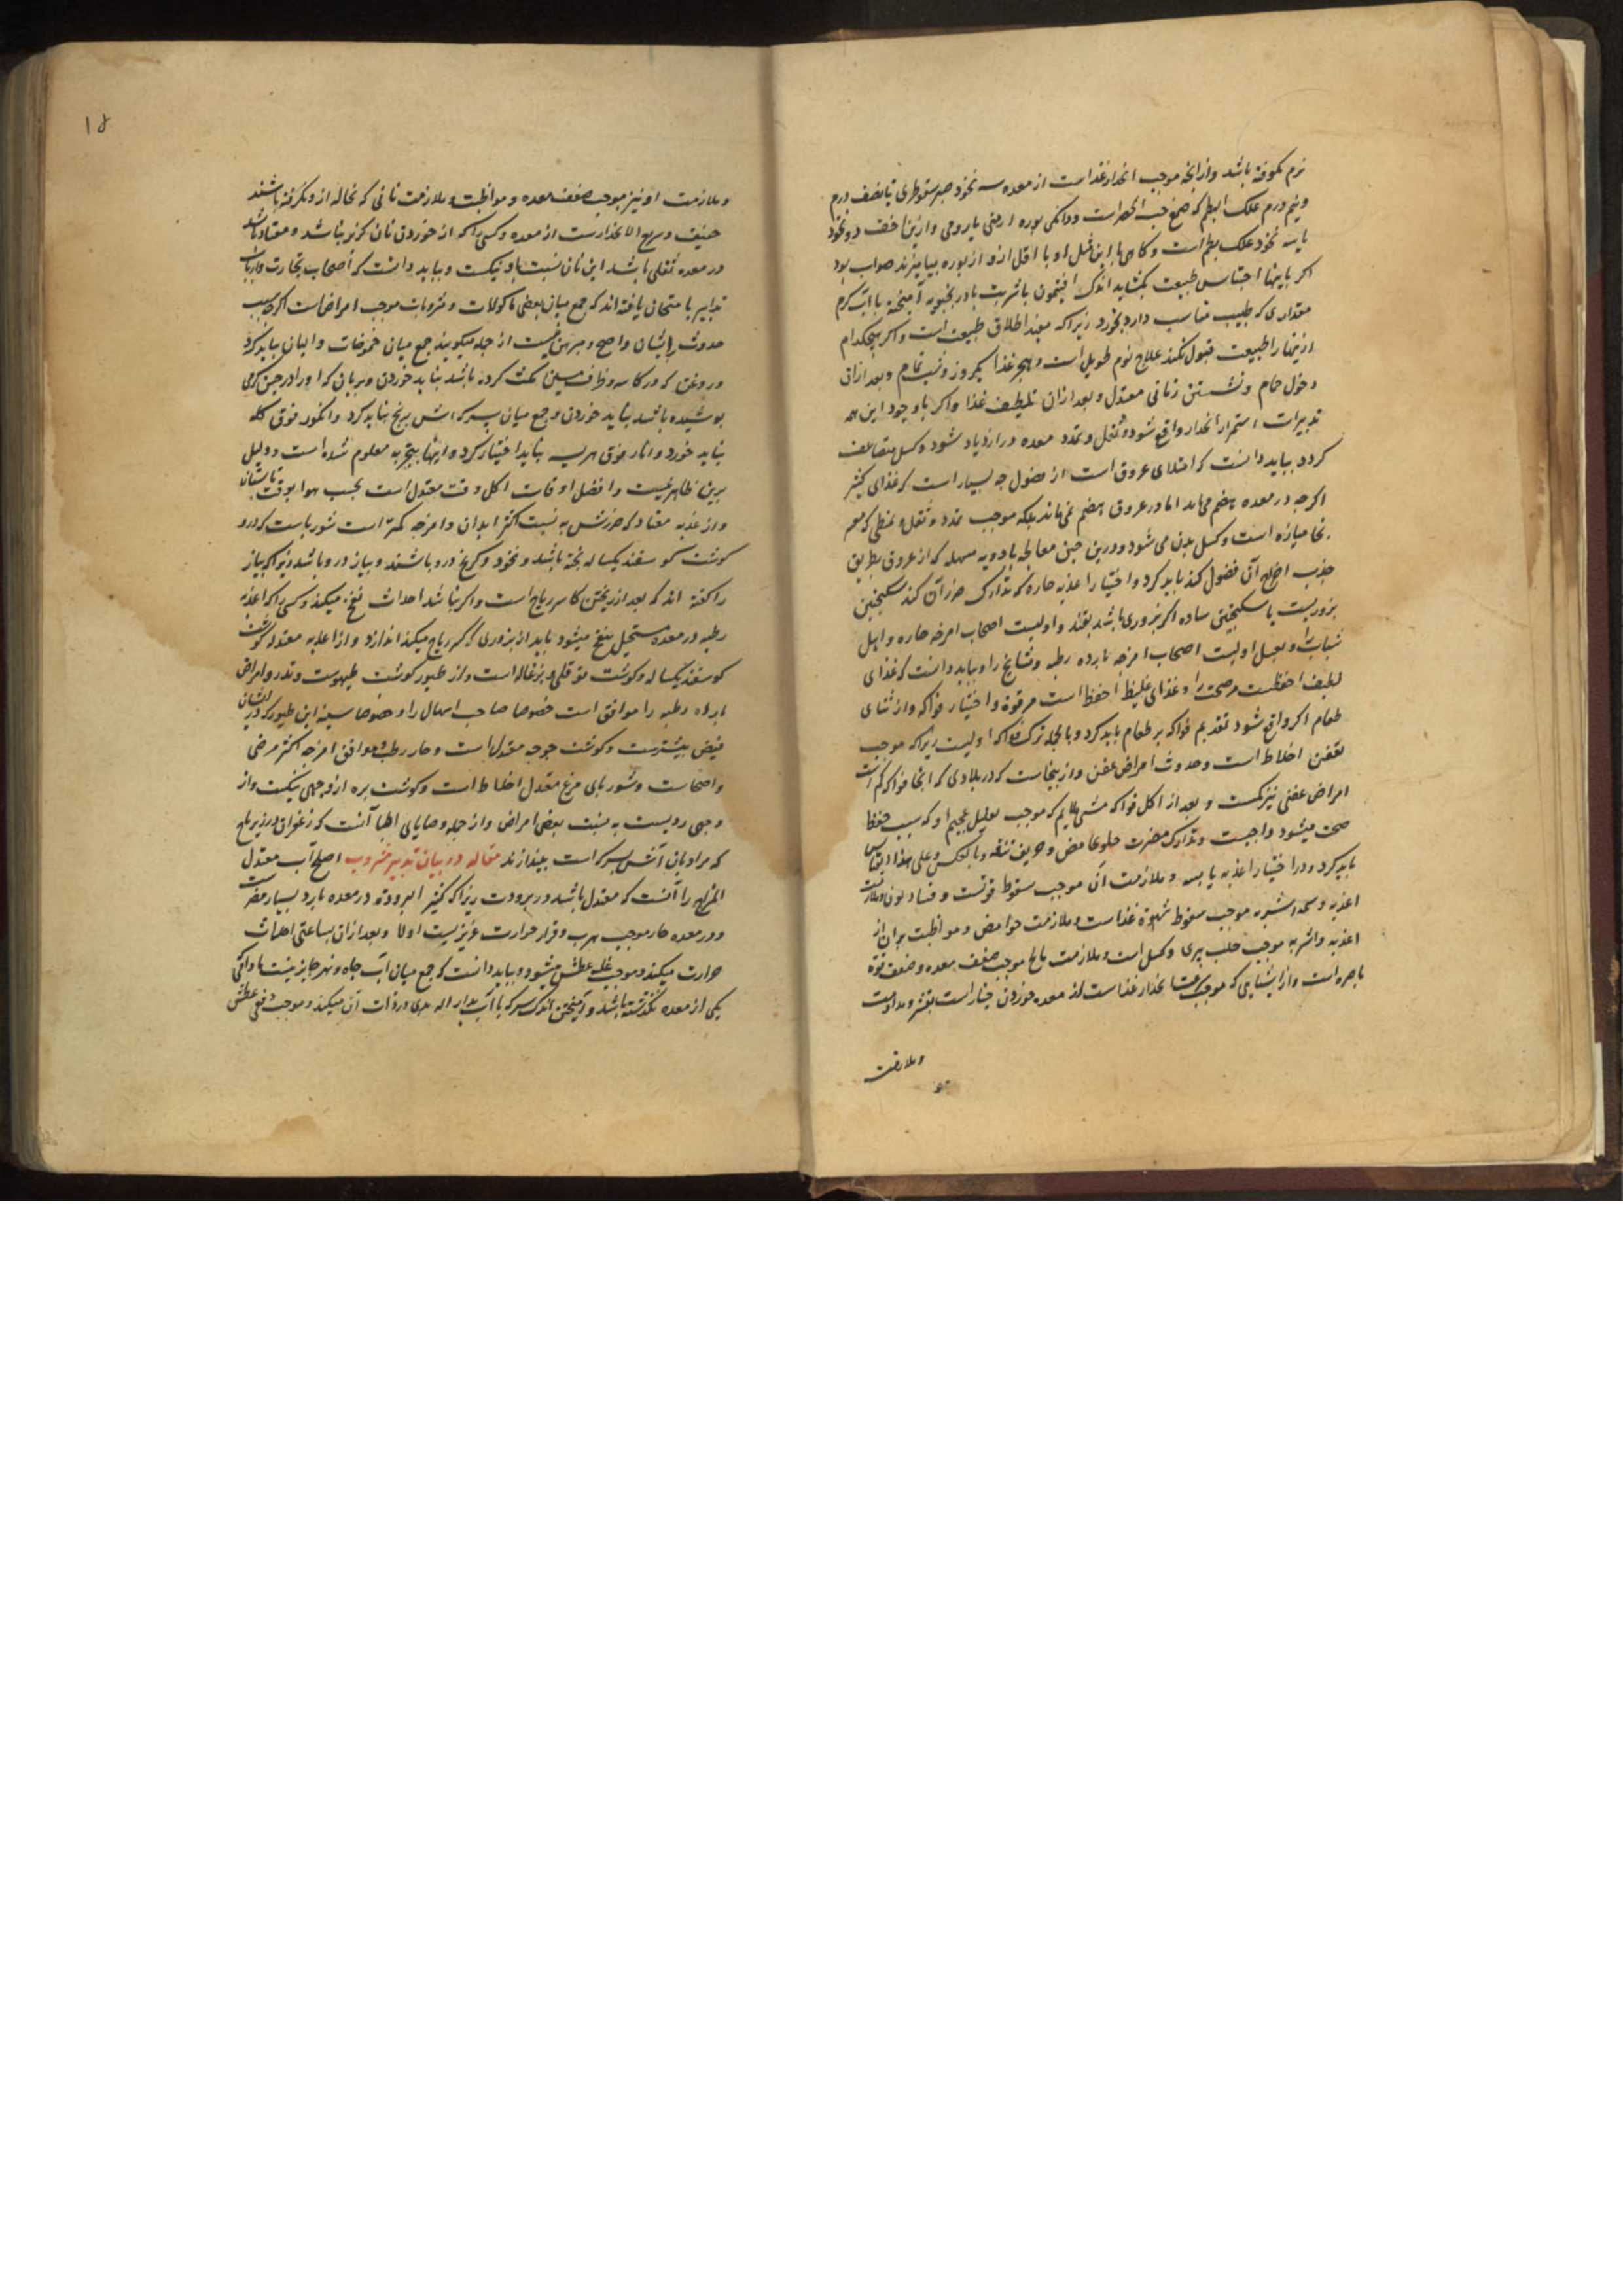 نرم کوفته باشد و از انچه موجب انحدار غذاست از معده سه نخود صبر سقوطری یا نصف درم
و نیم درم علک البطم که صمغ حب الخضراست و دانکی بوره ارمنی یا رومی و ازینها اخف دو نخود
یا سه نخود علک بطم است و کاهی با این مثل او یا اقل ازو از بوره بیامیزند صواب بود
اکر باینها احتباس طبیعت نکشاید اندک افتیمون با شربت بادرنجبویه آمیخته با آب کرم
مقداری که طبیب مناسب دارد بخورد زیرا که مفید اطلاق طبیعت است و اکر هیچکدام
ازینها را طبیعت قبول نکند علاج نوم طویل است و هجر غذا یکروز و شب تمام و بعد ازان
دخول حمام و نشستن زمانی معتدل و بعد ازان تلطیف غذا و اکر باوجود این همه
تدبیرات استمرار انحدار واقع شود و ثقل و تمدد معده در ازدیاد شود و کسل متضاعف
کردد بباید دانست که امتلای عروق است از فضول چه بسیار است که غذای کثیر
اکرچه در معده هضم می‌یابد اما در عروق هضم نمی‌یابد بلکه موجب تمدد و ثقل و تمطی که
خامیازه است و کسل بدن می‌شود و درین حین معالجه بادویه مسهله که از عروق بطریق
جذب اخراج آن فضول کند باید کرد و اختیار اغذیه حاره که تدارک ضرر آن کند سکنجبین
بزوریست یا سکنجبین ساده اکر بزوری باشد بقند و اولیست اصحاب امزجه حاره و اهل
شباب را و بعسل اولیست اصحاب امزجه بارده رطبه و مشایخ را و بباید دانست که غذای
لطیف احفظست مر صحت را و غذای غلیظ احفظ است مر قوة و اختیار فواکه و از ثنای
طعام اکر واقع شود تقدیم فواکه بر طعام باید کرد و بالجمله ترک فواکه اولیست زیرا که موجب
تعفن اخلاط است و حدوث امراض عفن و ازینجاست که در بلادی که آنجا فواکه کم است
امراض عفنی نیز کمست و بعد از اکل فواکه مشی ملایم که موجب تعلیل او که سبب حفظ
صحت میشود واجبست و تدارک مضرت حلو بحامض و حریف بتفه و بالعکس و علی هذا القیاس
باید کرد و در اختیار اغذیه یابسه و ملازمت آن موجب سقوط قوتست و فساد لون و ملازمت
اغذیه دسمه اشربه موجب سقوط شهوة غذاست و ملازمت حوامض و مواظبت بران از
اغذیه و اشربه موجب جلب پیری و کسل است و ملازمت مالح موجب ضعف معده و ضعف قوة
باصره است و از اشیایی که موجب سرعت انحدار غذاست از معده خوردن خیار است بقشر و مداومت
و ملازمت
۱۵
و ملازمت او نیز موجب ضعف معده و مواظبت و ملازمت نانی که نخاله ازو نکرفته باشند
خفیف و سریع الانحدارست از معده و کسی را که از خوردن نان کزیر نباشد و معتاد باشد
در معده ثقلی باشد این نان نسبت باو نیکست و بباید دانست که اصحاب تجارت و ارباب
تدابیر بامتحان یافته‌اند که جمع میان بعضی ماکولات و مشروبات موجب امراض است اکرچه سبب
حدوث را بایشان واضح و مبرهن نیست از جمله میکویند جمع میان حموضات و البان نباید کرد
و روغن که در کاسه و ظرف مسین مکث کرده باشد نباید خوردن و بریان که او را در حین کرمی
پوشیده باشند نباید خوردن و جمع میان سرکه و آش برنج نباید کرد و انکور فوق کله
نباید خورد و انار فوق هریسه نباید اختیار کرد و اینها بتجربه معلوم شده است و دلیل
برین ظاهر نیست و افضل اوقات اکل وقت معتدل است بحسب هوا بوقت تابستان
و از غذیه معتاد که ضررش به نسبت اکثر ابدان و امزجه کمتر است شورباست که درو
کوشت کوسفند یکساله پخته باشد و نخود و کرنج درو باشند و پیاز درو باشد زیرا که پیاز
را کفته‌اند که بعد از پختن کاسر ریاح است و اکر نباشد احداث نفخ میکند و کسی را که اغذیه
رطبه در معده مستحیل بنفخ میشود باید از بزوری که کسر ریاح میکند اندازد و از اغذیه معتدله کوشت
کوسفند یکساله و کوشت بزغاله است و از طیور کوشت طیهوست و تذرو و امراض
بارده رطبه را موافق است خصوصا صاحب اسهال را و خصوصا سینه این طیور که در ایشان
قبض بیشترست و کوشت جوجه معتدل است و حار رطب و موافق امزجه اکثر مرضی
و اصحاست و شوربای مرغ معدل اخلاط است و کوشت بره از وجهی نیکست و از
وجهی ردیست به نسبت بعضی امراض و از جمله وصایای اطبا آنست که زعفران در زیرباج
که مراد بان آش سرکه است بیندازند مقاله در بیان تدبیر مشروب اصلح آب معتدل
المزاج را آنست که معتدل باشد در برودت زیرا که کثیر البرودة در معده بارد بسیار مضر است
و در معده حار موجب هرب و فرار حرارت غریزیست اولا و بعد ازان بساعتی احداث
حرارت میکند و موجب غلبه عطش میشود و بباید دانست که جمع میان آب چاه و نهر جایز نیست مادامی
یکی از معده نکذشته باشد و آمیختن اندک سرکه با آب بد ازاله بدی و رداءت آن میکند و موجب دفع عطش